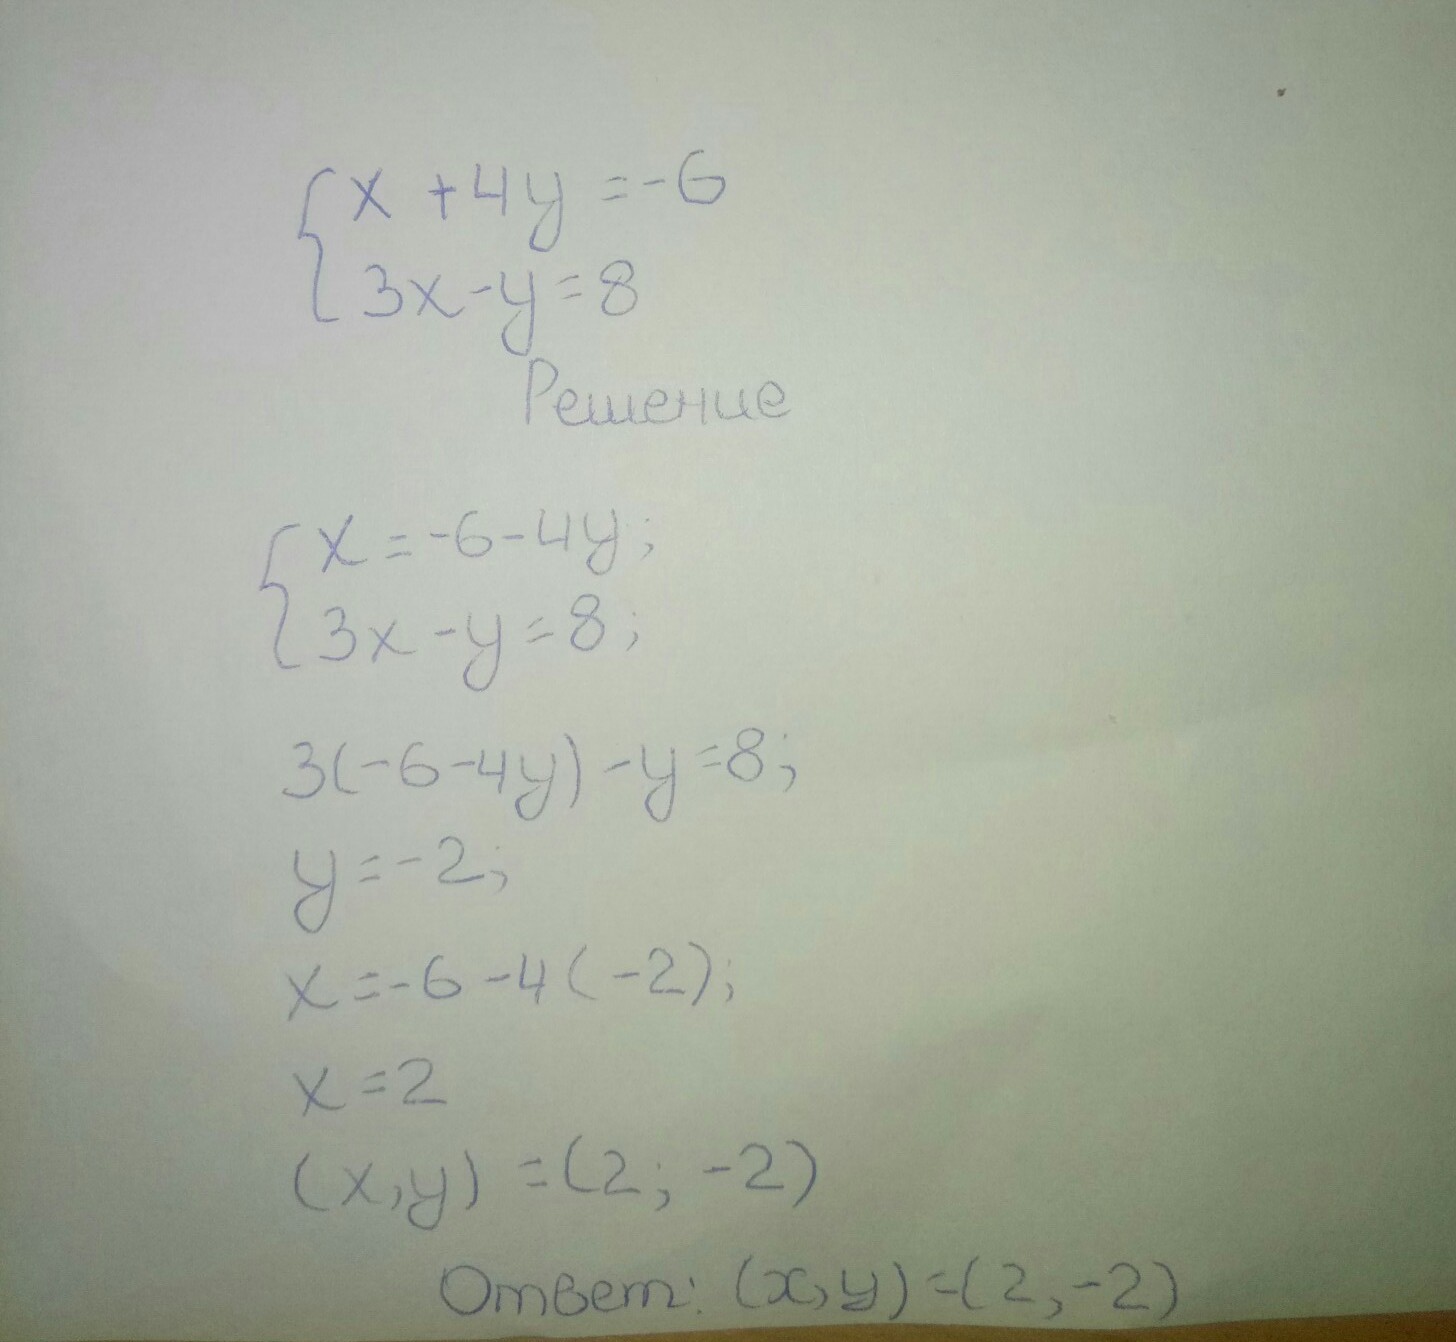 {x + 4y = -6
3x - y = 8
Решение
{x = -6 - 4y;
3x - y = 8;
3(-6 - 4y) - y = 8;
y = -2;
x = -6 - 4(-2);
x = 2
(x, y) = (2; -2)
Ответ: (x, y) = (2, -2)